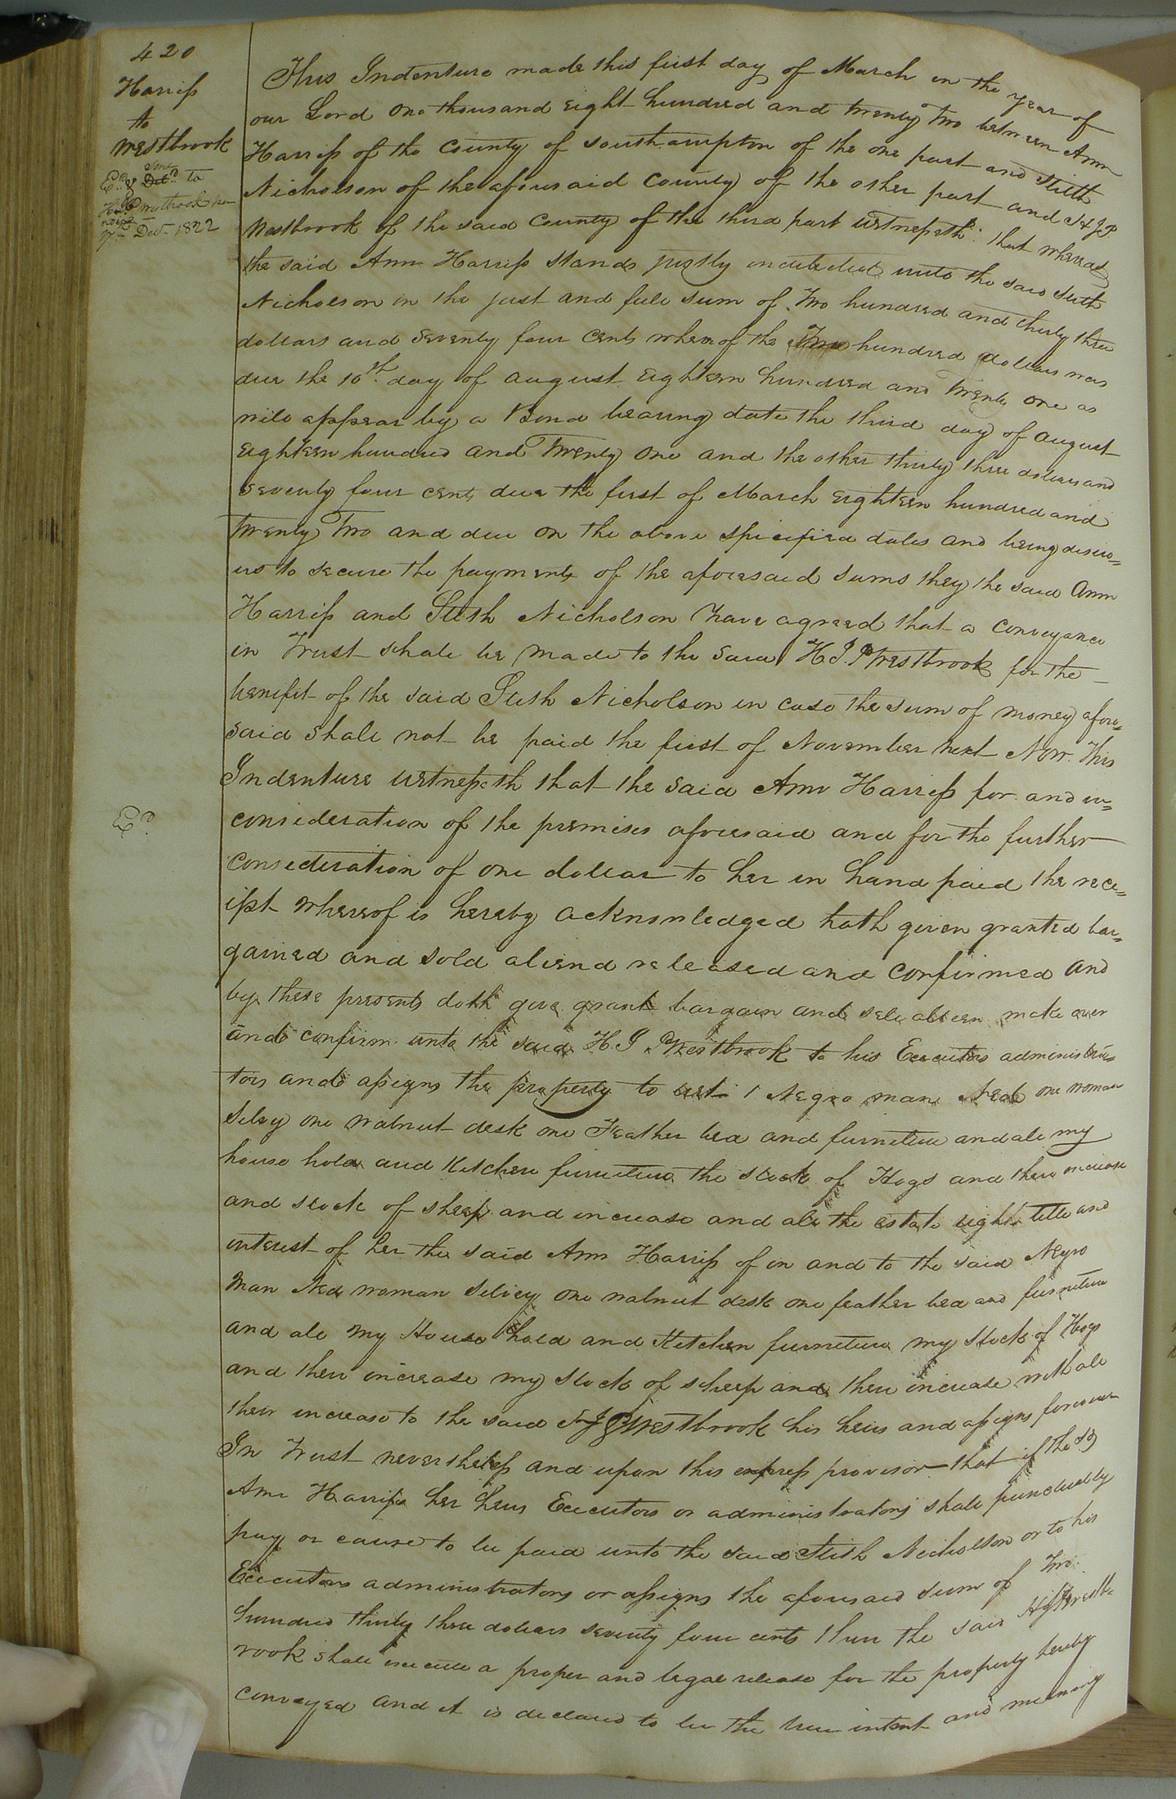 420
Harriss
to
Westbrook
to
Westbrook
Decr 1822
Ed
This Indenture made this first day of March in the year of
our Lord one thousand eight hundred and twenty two between Ann
Harriss of the county of Southampton of the one part and Stith
Nicholson of the aforesaid county of the other part and H J P
Westbrook of the said County of the third part witnesseth: that whereas
the said Ann Harriss stands justly indebted unto the said Stith
Nicholson in the just and full sum of Two hundred and thirty three
dollars and seventy four cents whereof the Two hundred dollars was
due the 10th day of August eighteen hundred and twenty one as
will appear by a Bond bearing date the third day of August
eighteen hundred and Twenty one and the other thirty three dollars and
seventy four cents due the first of March eighteen hundred and
twenty Two and due on the above specified dates and being desiro=
us to secure the payments of the aforesaid sums they the said Ann
Harriss and Stith Nicholson have agreed that a conveyance
in Trust shall be made to the said H J. P Westbrook for the
benefit of the said Stith Nicholson in case the sum of money afore=
said shall not be paid the first of November next Now This
Indenture witnesseth that the said Ann Harriss for and in=
consideration of the premises aforesaid and for the further
consideration of one dollar to her in hand paid the rece=
ipt whereof is hereby acknowledged hath given granted bar=
gained and sold aliend released and confirmed and
by these presents doth give grant bargain and sell alien make over
and confirm unto the said H. J P Westbrook to his Executors administra=
tors and assigns the property to wit 1 Negro man Ned one woman
Silvy one walnut desk one Feather bed and furniture and all my
house hold and Kitchen furniture the stock of Hogs and their increase
and stock of sheep and increase and all the estate right title and
interest of her the said Ann Harriss of in and to the said Negro
man Ned woman Silvey one walnut desk one feather bed and furniture
and all my House hold and Kitchen furniture my stock of Hogs
and their increase my stock of sheep and their increase with all
their increase to the said H J P Westbrook his heirs and assigns forever
In Trust nevertheless and upon this express provisor that if the sd
Ann Harriss her heirs Executors or administrators shall punctually
pay or cause to be paid unto the said Stith Nicholson or to his
Executors administrators or assigns the aforesaid sum of Two
hundred thirty three dollars seventy four cents then the said Westb
rook shall execute a proper and legal release for the property hereby
conveyed and it is declared to be the true intent and meaning